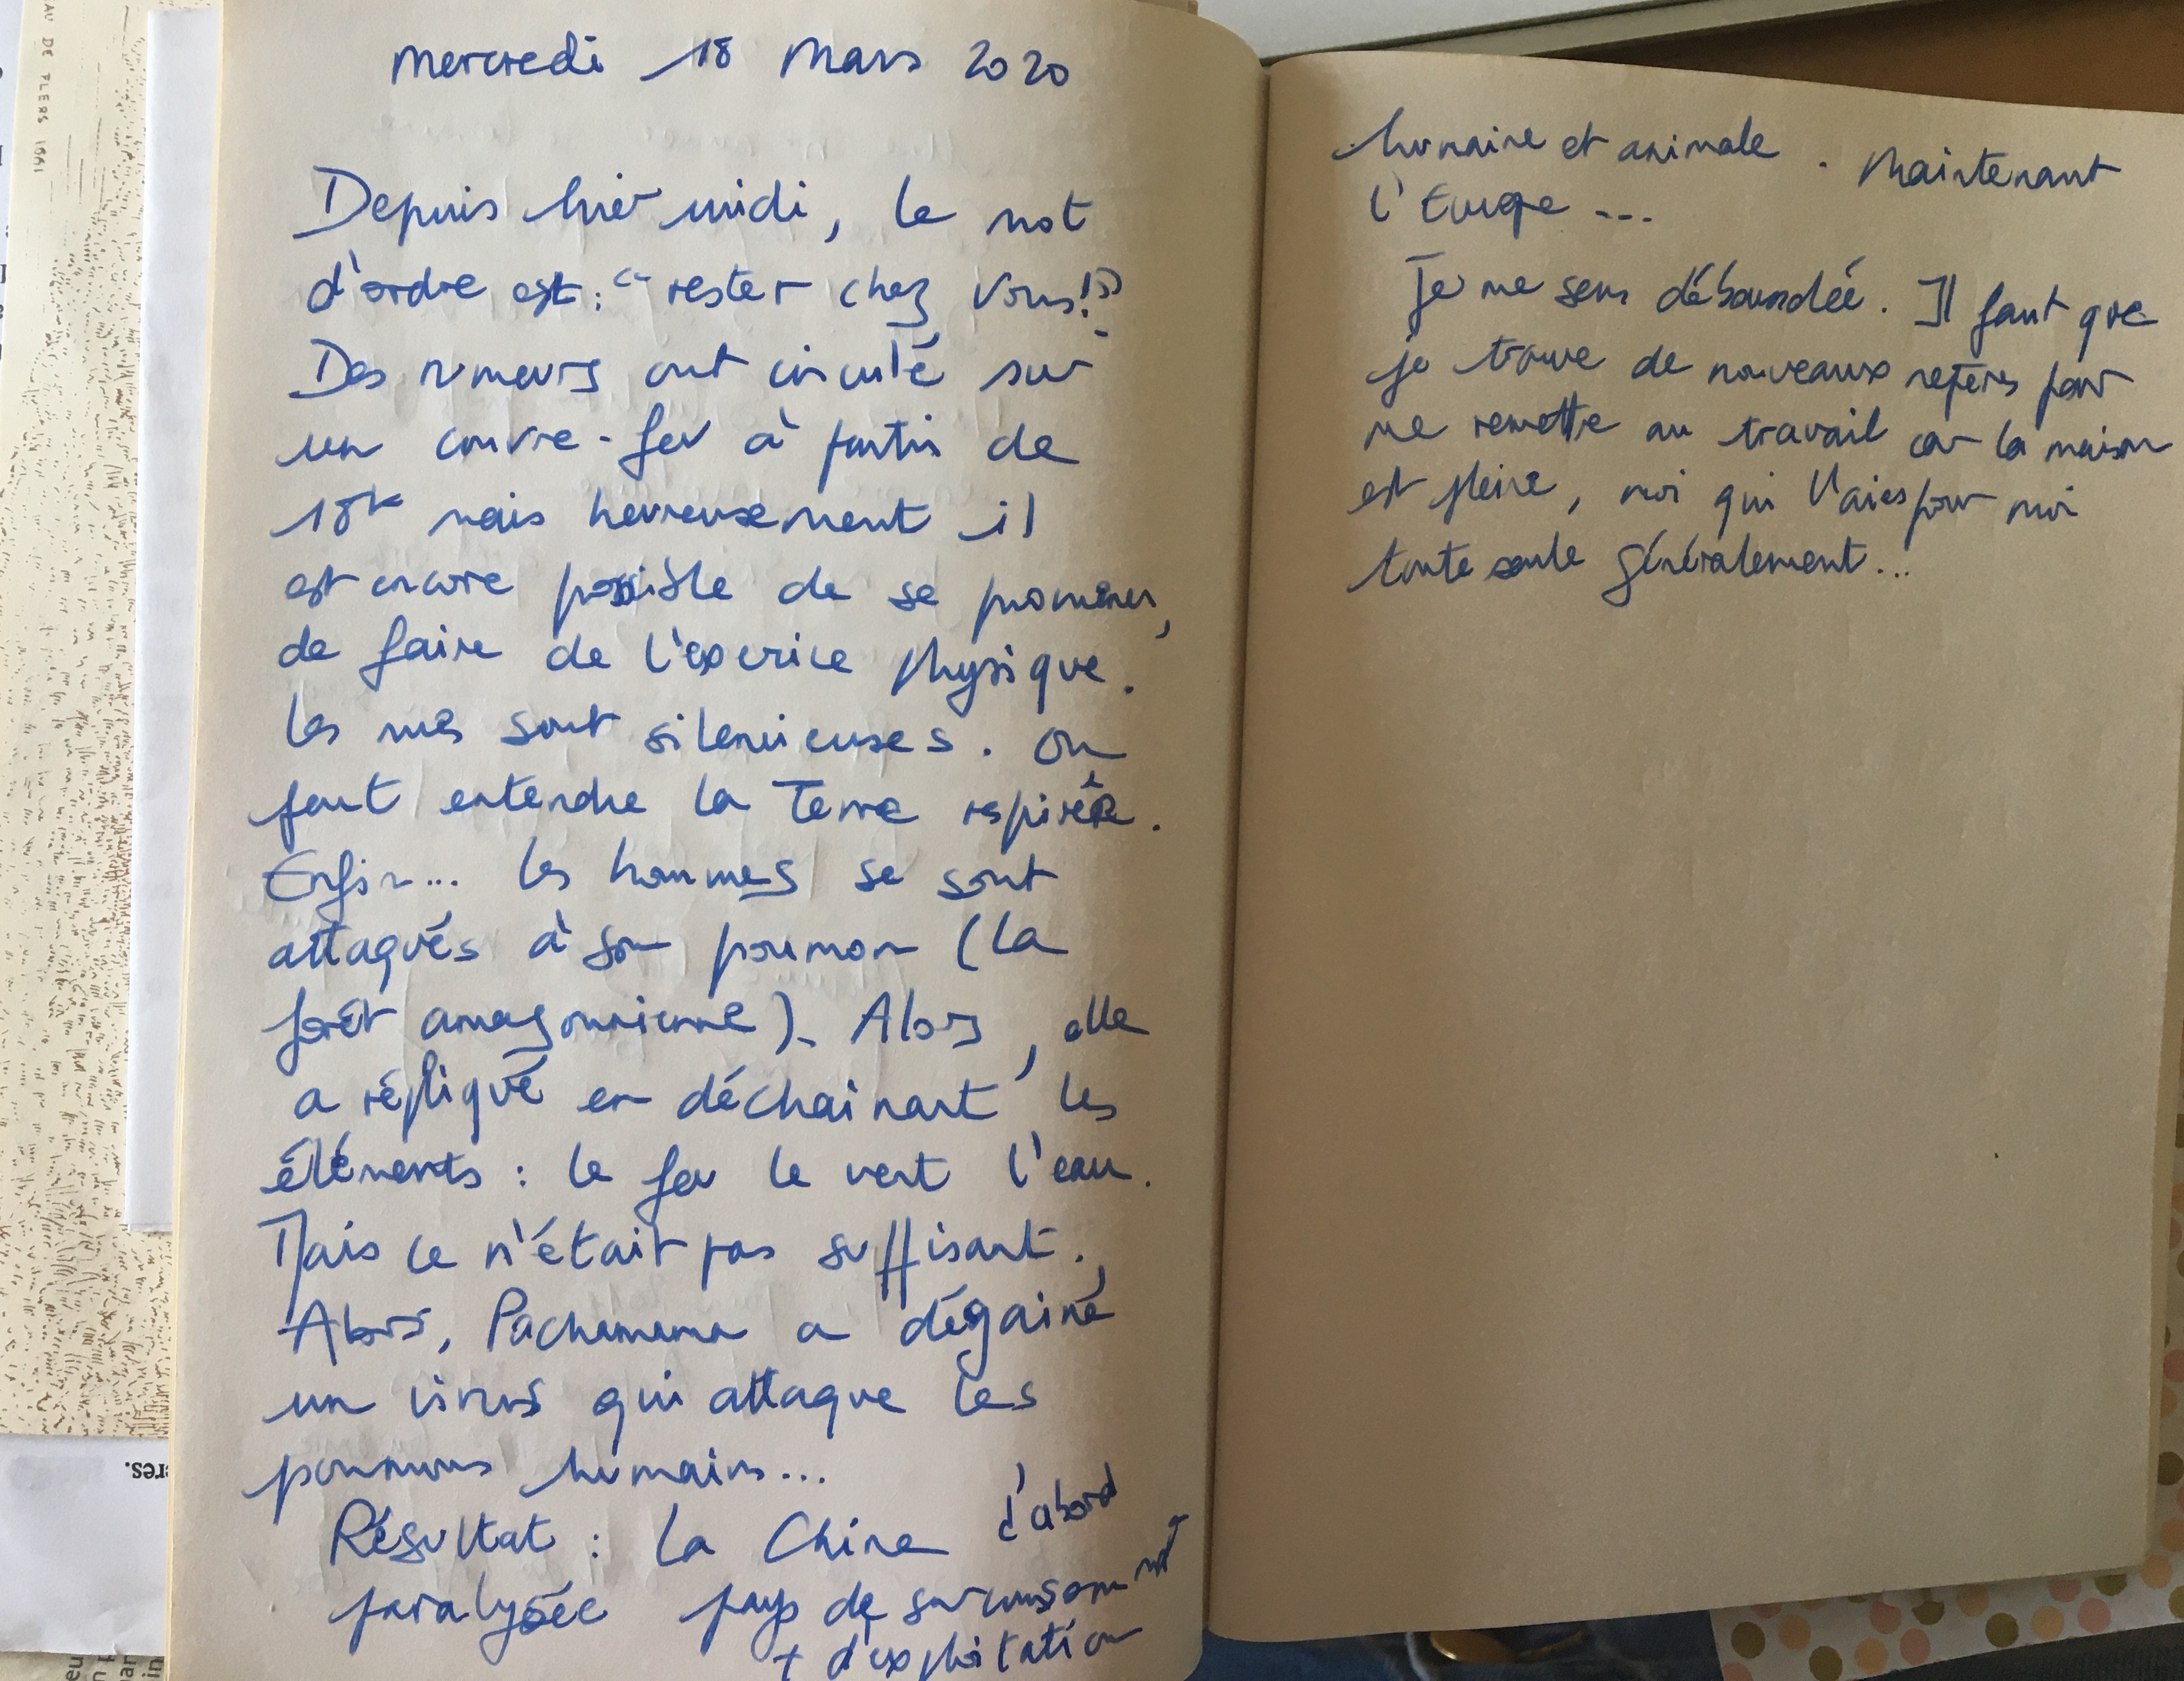 mercredi 18 mars 2020
Depuis hier midi, le mot
d'ordre est : "rester chez vous!"
Des rumeurs ont circulé sur
un couvre-feu à partir de
18h mais heureusement il
est encore possible de se promener,
de faire de l'exercice physique.
Les rues sont silencieuses. On
peut entendre la Terre respirer.
Enfin... les hommes se sont
attaqués à son poumon (la
forêt amazonnienne). Alors, elle
a répliqué en déchainant les
éléments : le feu le vent l'eau.
Mais ce n'était pas suffisant.
Alors, Pachamama a dégainé
un virus qui attaque les
poumons humains...
Résultat : La Chine d'abord
paralysée pays de surconsommat°
+ d'exploitation
humaine et animale. Maintenant
l'Europe ...
Je me sens déboussolée. Il faut que
je trouve de nouveaux repères pour
me remettre au travail car la maison
est pleine, moi qui l'ais pour moi
toute seule généralement...
AU DE FLERS 1991
res.